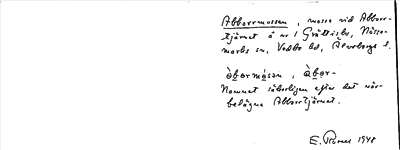 Abborrmossen, mosse vid Abborr-
tjärnet å nr 1 Gråttisbo, Nösse-
marks sn, Vedbo hd, Älvsborgs l.
àbərmɔ́sən, àbər-
Namnet säkerligen efter det när-
belägna Abborrtjärnet.
E. 1948